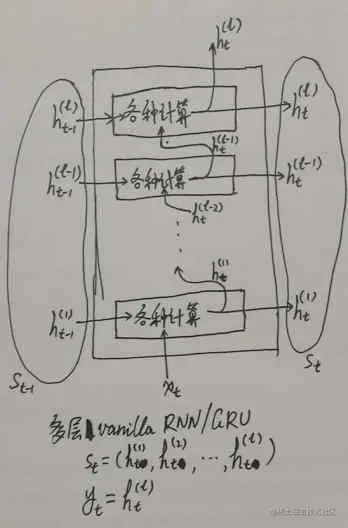 h_t^{(l)}
h_{t-1}^{(l)} 各种计算 h_t^{(l)}
h_t^{(l-1)}
h_{t-1}^{(l-1)} 各种计算 h_t^{(l-1)}
h_t^{(l-2)}
h_t^{(1)}
h_{t-1}^{(1)} 各种计算 h_t^{(1)}
S_{t-1} S_t
x_t
多层 vanilla RNN/GRU
S_t=(h_t^{(1)}, h_t^{(2)}, ..., h_t^{(l)})
y_t=h_t^{(l)}
@稀土掘金技术社区